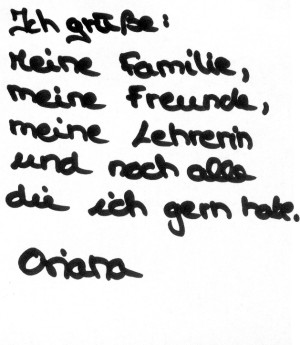 Ich grüße:
Meine Familie,
meine Freunde,
meine Lehrerin
und noch alle
die ich gern hab.
Oriana